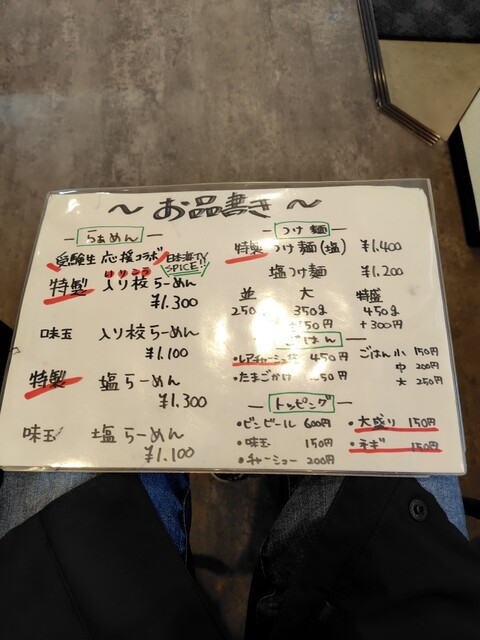 ～お品書き～
らぁめん
受験生応援コラボ
いりこう
SPICE!!
特製 入り校らーめん
¥1.300
味玉 入り校らーめん
¥1.100
特製 塩らーめん
¥1.300
味玉 塩らーめん
¥1.100
つけ麺
特製 つけ麺(塩) ¥1.400
塩つけ麺 ¥1.200
並 大 特盛
250 350g 450g
150円 +300円
ごはん
・レアチャーシュー 450円
・たまごかけ 50円
ごはん小 150円
中 200円
大 250円
トッピング
・ビンビール 600円
・味玉 150円
・チャーシュー 200円
・大盛り 150円
・ネギ 150円